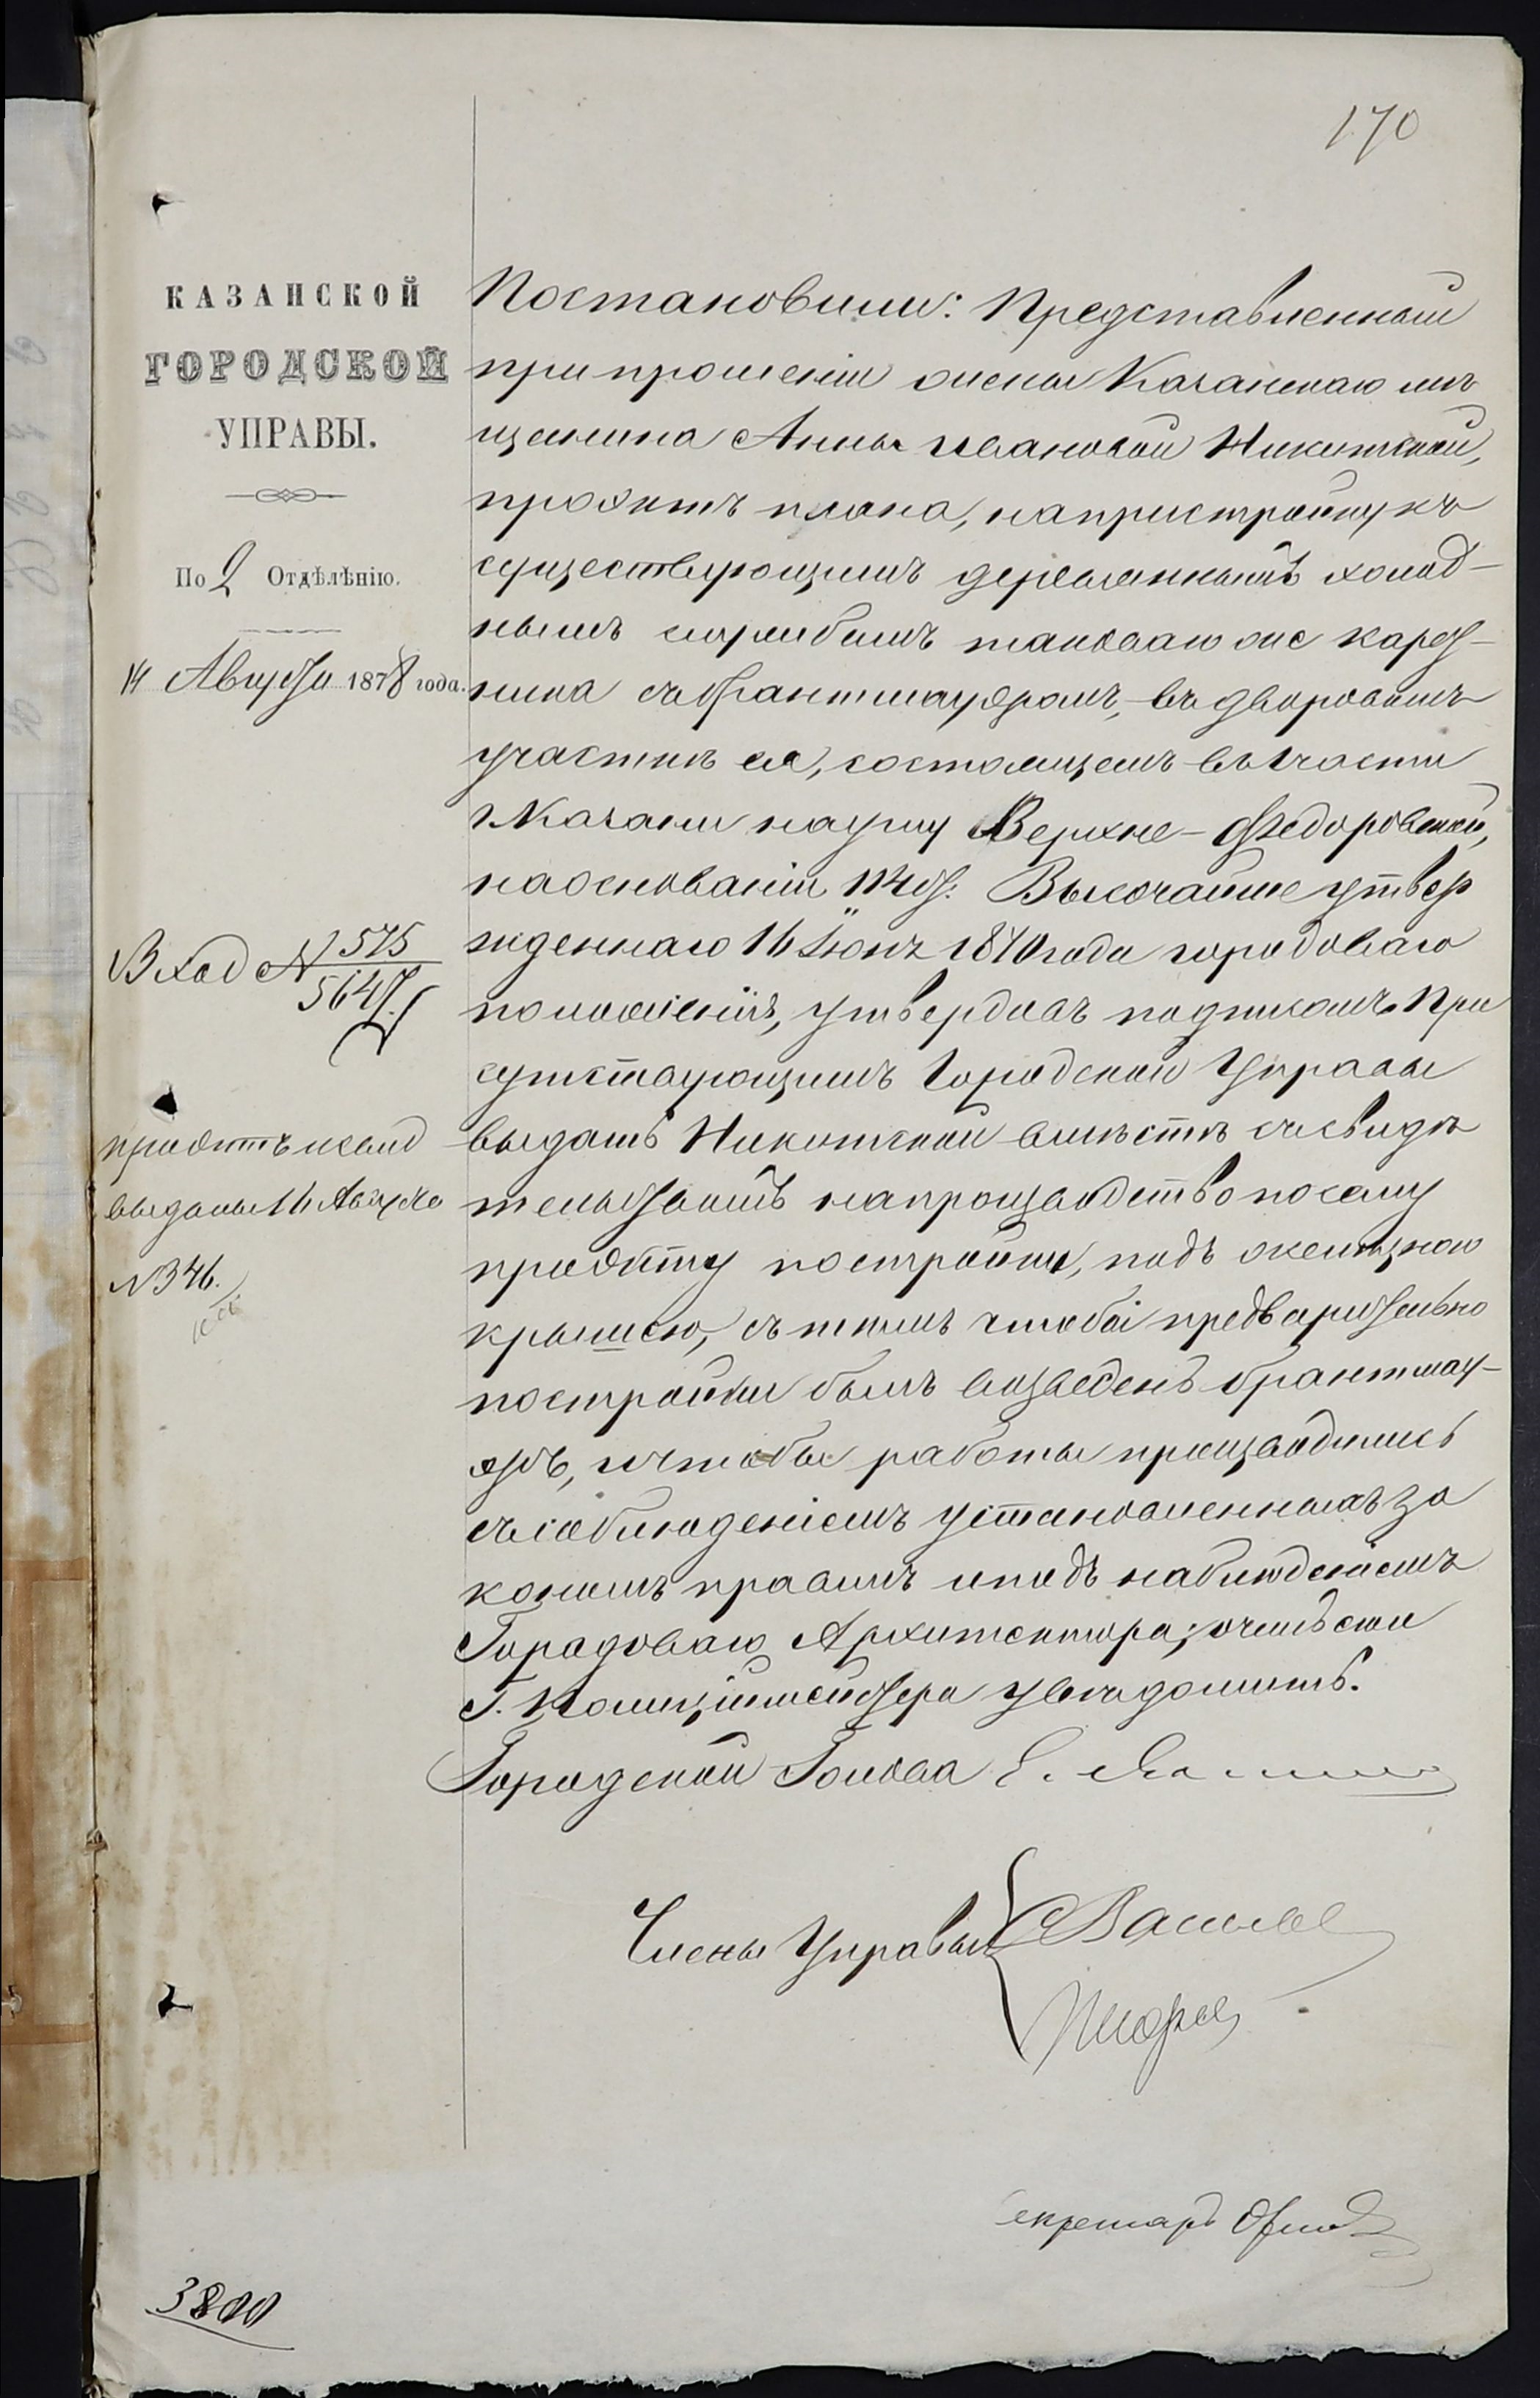 170
КАЗАНСКОЙ
ГОРОДСКОЙ
УПРАВЫ.
По 2 Отдѣлѣнію.
14 Августа 1878 года.
Вход №575
5647
проэктъ и свид
выданы 16 Августа
№346.
Постановили: Представленный
при прошеніи жены Казанскаго мѣ
щанина Анны Ивановой Никитской,
проэктъ плана, на пристройку къ
существующимъ деревяннымъ холод-
нымъ службамъ таковаго же карет-
ника съ брантмауеромъ, въ дворовомъ
участкѣ ея, состоящемъ въ 1 части
г. Казани на углу Верхне-Федоровской,
на основаніи 114 ст. Высочайше утвер
жденнаго 16 Іюня 1870 года городоваго
положенія, утвердивъ подписомъ При
сутствующимъ Городской Управы
выдать Никитской вмѣстѣ съ свидѣ
тельствомъ на производство по сему
проэкту постройки, подъ желѣзною
крышею, съ тѣмъ чтобы предварительно
постройки былъ возведенъ брантмау-
эръ, и чтобы работы производились
съ соблюденіемъ установленныхъ за
кономъ правилъ и подъ наблюденіемъ
Городоваго Архитектора; о чемъ и
Г. Полиціймейстера увѣдомить.
Городской Голова Е.
Члены Управы
Секретарь
3800